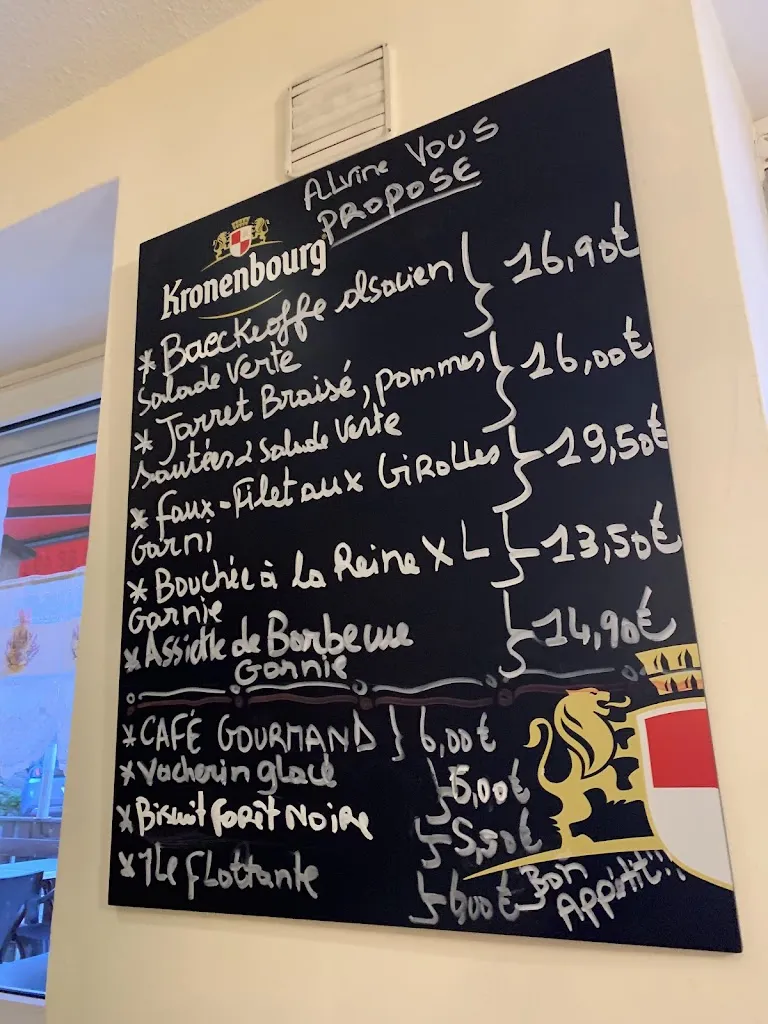 Alvine Vous
PROPOSE
Kronenbourg
* Baeckeoffe alsacien } 16,90€
Salade verte
* Jarret Braisé, pommes } 16,00€
sautées & Salade verte
* Faux-Filet aux Girolles } 19,50€
Garni
* Bouchée à la Reine XL } 13,50€
Garnie
* Assiette de Barbecue } 14,90€
Garnie
* CAFÉ GOURMAND } 6,00€
* Vacherin glacé } 5,00€
* Biscuit Forêt Noire } 5,50€
* Ile Flottante } 6,00€
Bon
Appétit!!